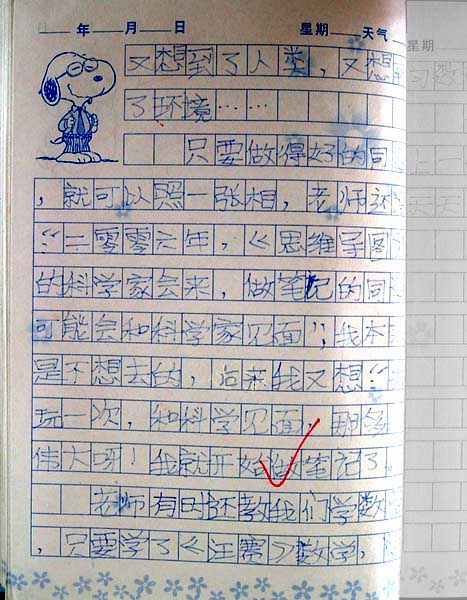 年 月 日 星期 天气
又想到了人类，又想
了环境……
只要做得好的同
，就可以照一张相，老师还
“二零零六年，《思维导图
的科学家会来，做笔记的同
可能会和科学家见面”，我本
是不想去的，后来我又想“
玩一次，和科学见面，那多
伟大呀！我就开始做笔记了。
老师有时还教我们学数
，只要学了《汪赛》数学，
星期
习数